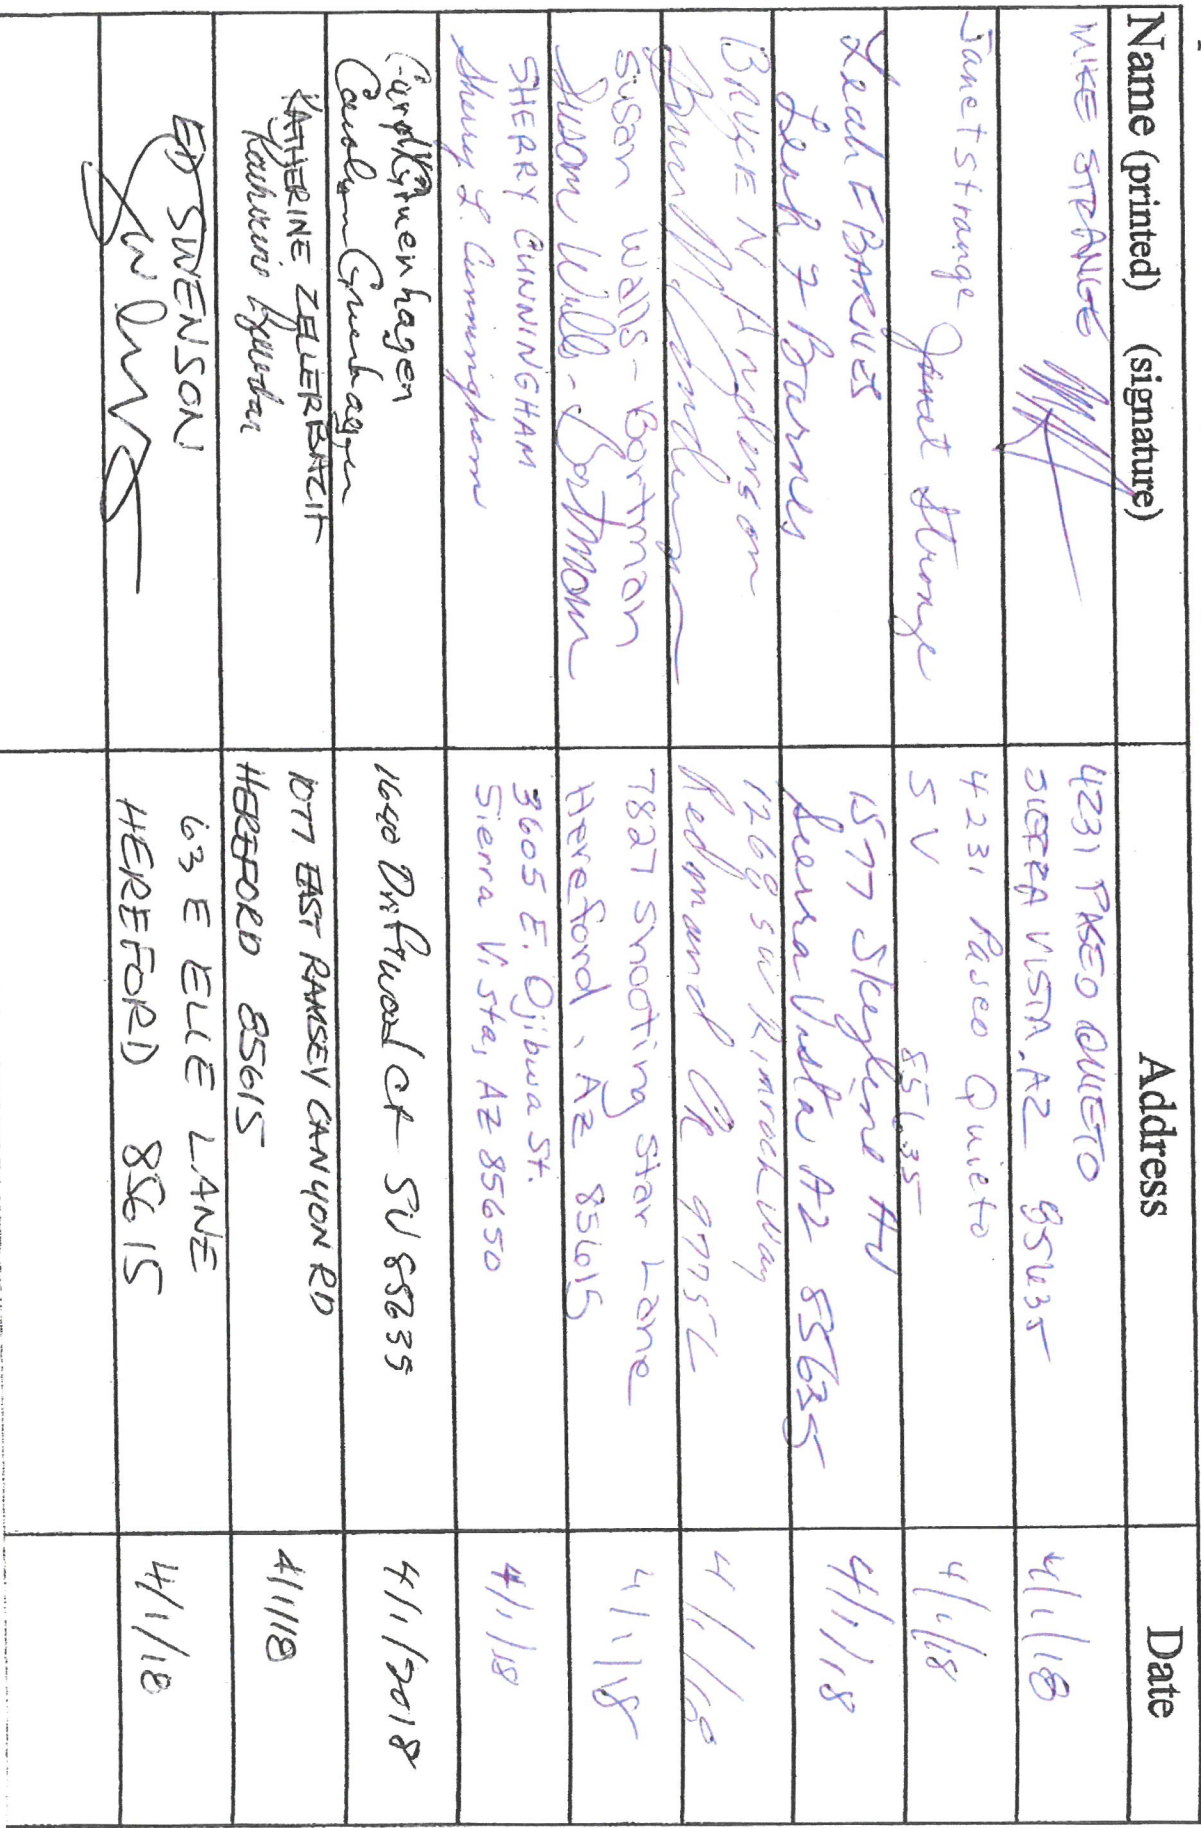 Name (printed) (signature) Address Date
MIKE STRANGE
4231 PASEO QUIETO
SIERRA VISTA, AZ 85635
4/1/18
Janet Strange Janet Strange
4231 Paseo Quieto
SV 85635
4/1/18
Leah F BARNES
Leah F Barnes
1577 Skyline Av
Sierra Vista AZ 85635
4/1/18
BRYCE N Anderson
1268 SW Rimrock Way
Redmond OR 97756
4/1/18
Susan Walls-Bortman
Susan Walls-Bortman
7827 Shooting Star Lane
Hereford, AZ 85615
4/1/18
SHERRY CUNNINGHAM
Sherry L. Cunningham
3605 E. Ojibwa St.
Sierra Vista, AZ 85650
4/1/18
Gruenhagen
Carolyn Gruenhagen
1640 Driftwood Ct SV 85635
4/1/2018
KATHERINE ZELLERBACH
1077 EAST RAMSEY CANYON RD
HEREFORD 85615
4/1/18
ED SWENSON
63 E ELLE LANE
HEREFORD 85615
4/1/18